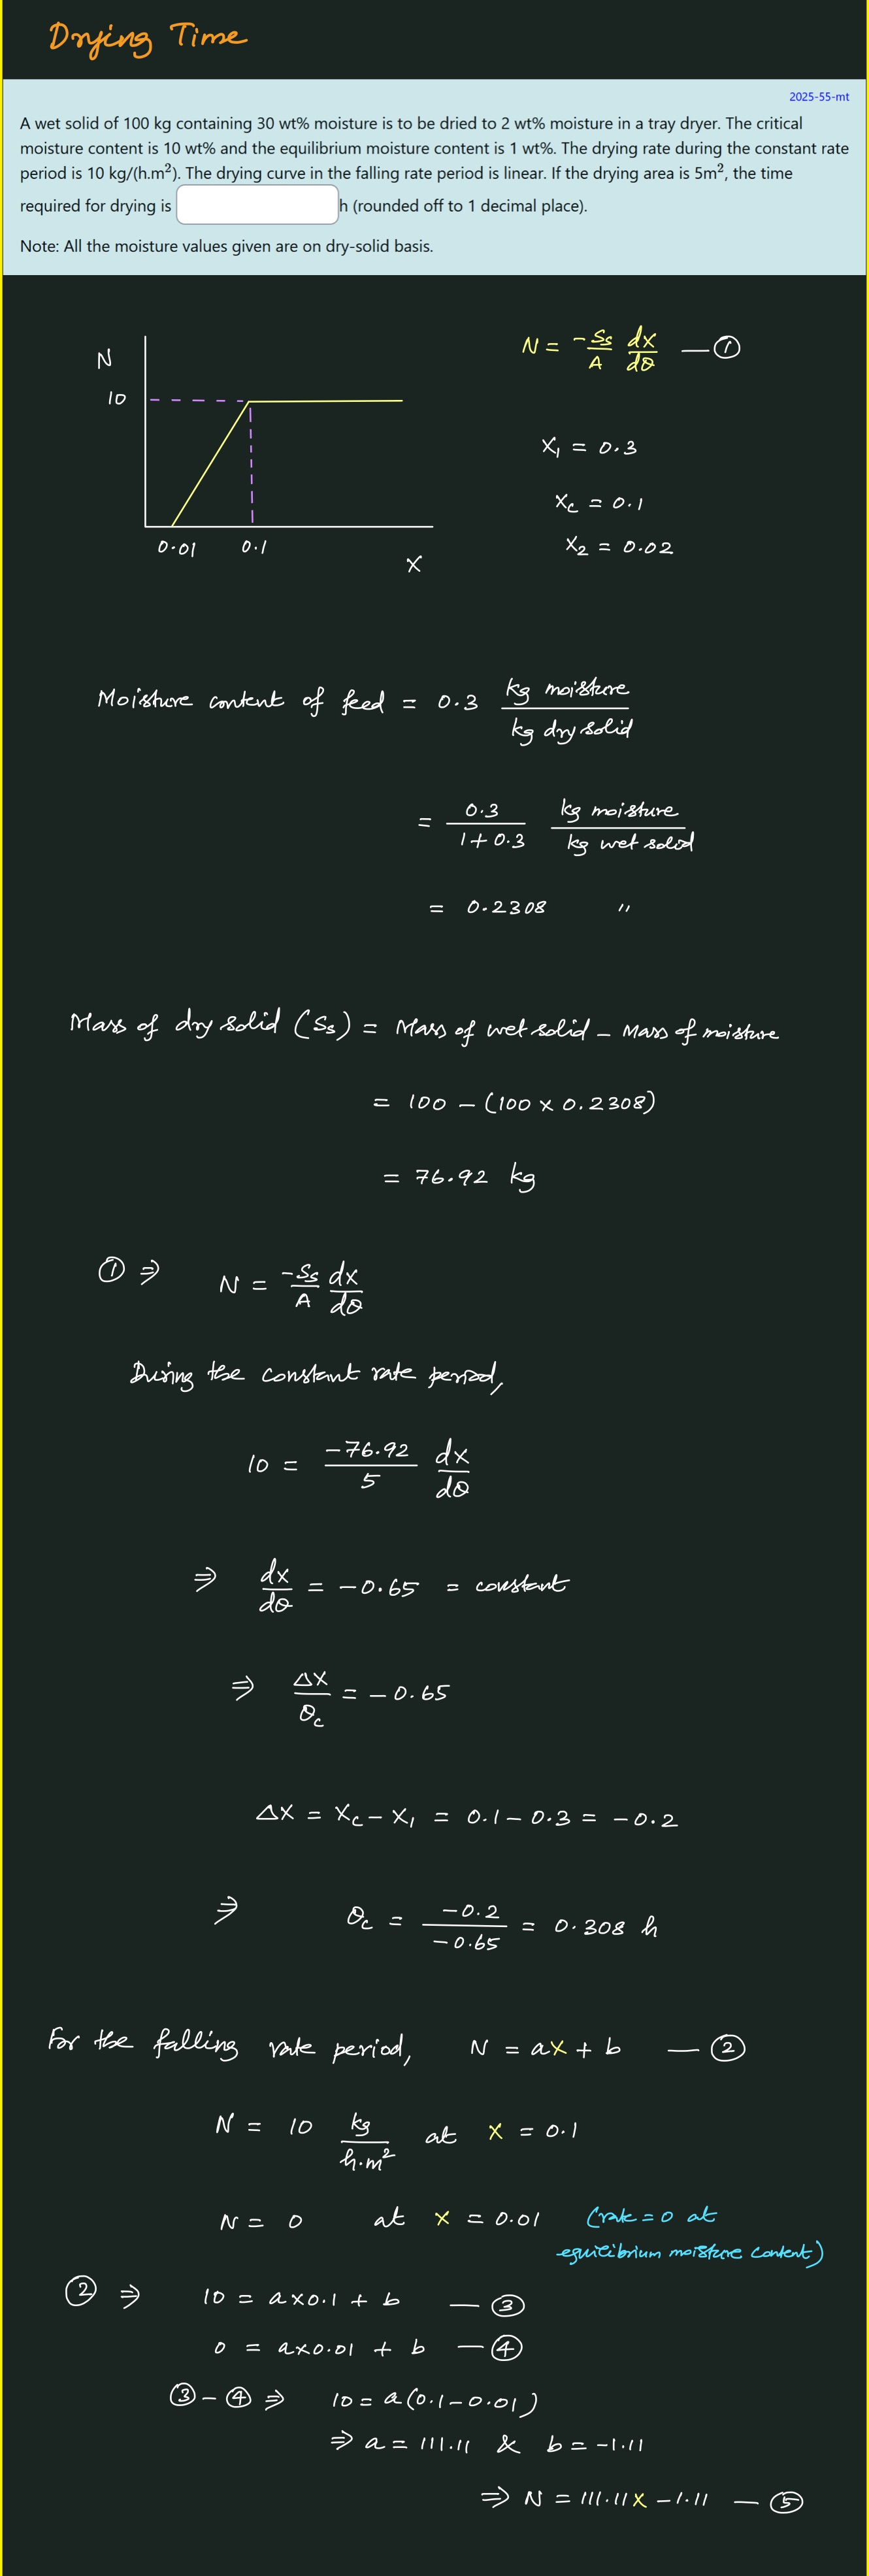 Drying Time
2025-55-mt
A wet solid of 100 kg containing 30 wt% moisture is to be dried to 2 wt% moisture in a tray dryer. The critical
moisture content is 10 wt% and the equilibrium moisture content is 1 wt%. The drying rate during the constant rate
period is 10 kg/(h.m²). The drying curve in the falling rate period is linear. If the drying area is 5m², the time
required for drying is h (rounded off to 1 decimal place).
Note: All the moisture values given are on dry-solid basis.
N
10
0.01 0.1
X
N = -Ss/A dX/dθ — ①
X₁ = 0.3
Xc = 0.1
X₂ = 0.02
Moisture content of feed = 0.3 kg moisture / kg dry solid
= 0.3 / 1+0.3 kg moisture / kg wet solid
= 0.2308 "
Mass of dry solid (Ss) = Mass of wet solid – Mass of moisture
= 100 – (100 × 0.2308)
= 76.92 kg
① ⇒ N = -Ss/A dX/dθ
During the constant rate period,
10 = -76.92/5 dX/dθ
⇒ dX/dθ = -0.65 = constant
⇒ ΔX/θc = -0.65
ΔX = Xc - X₁ = 0.1 - 0.3 = -0.2
⇒ θc = -0.2/-0.65 = 0.308 h
For the falling rate period, N = aX + b — ②
N = 10 kg/h.m² at X = 0.1
N = 0 at X = 0.01 (rate = 0 at
equilibrium moisture content)
② ⇒ 10 = a×0.1 + b — ③
0 = a×0.01 + b — ④
③ - ④ ⇒ 10 = a(0.1 - 0.01)
⇒ a = 111.11 & b = -1.11
⇒ N = 111.11X - 1.11 — ⑤